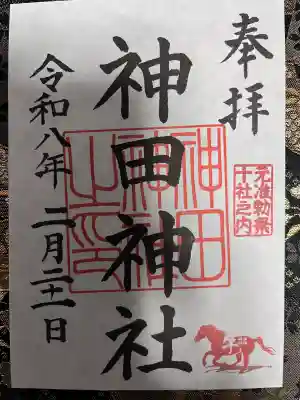 奉拝
元准勅祭
十社之内
神田神社
神田神社之印
令和八年 二月二十一日